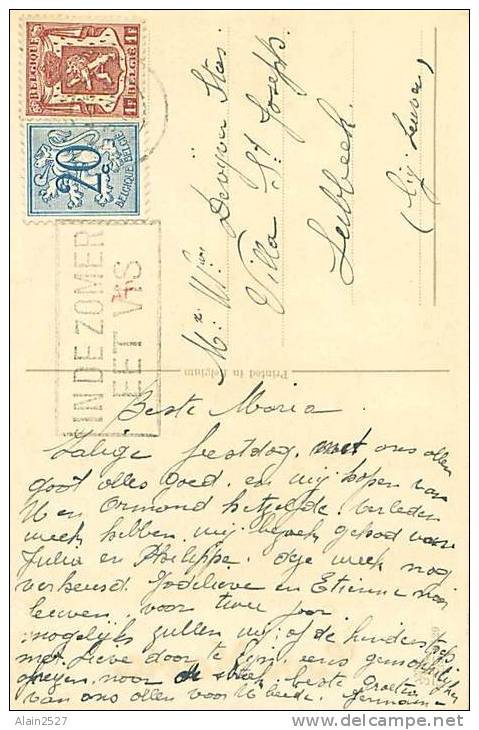 BELGIQUE BELGIË
1F 1F
20
BELGIQUE-BELGIE
IN DE ZOMER
EET VIS
Mr. Mme Devoyon Stas.
Villa St Joseph
Lubbeek
(bij Leuven)
Printed in Belgium
Beste Maria.
Zalige feestdag, met ons allen
gaat alles goed. en wij hopen van
U en Ormond hetzelfde. verleden
week hebben wij bezoek gehad van
Julia en Philippe. deze week nog
verkeerd Godelieve en Etienne van
leuven voor twee jaar.
mogelijks zullen wij of de kinders
met lieve door te zijn eens
beste Groeten
van ons allen voor U beide. Germaine
Alain2527
http://www.delcampe.net